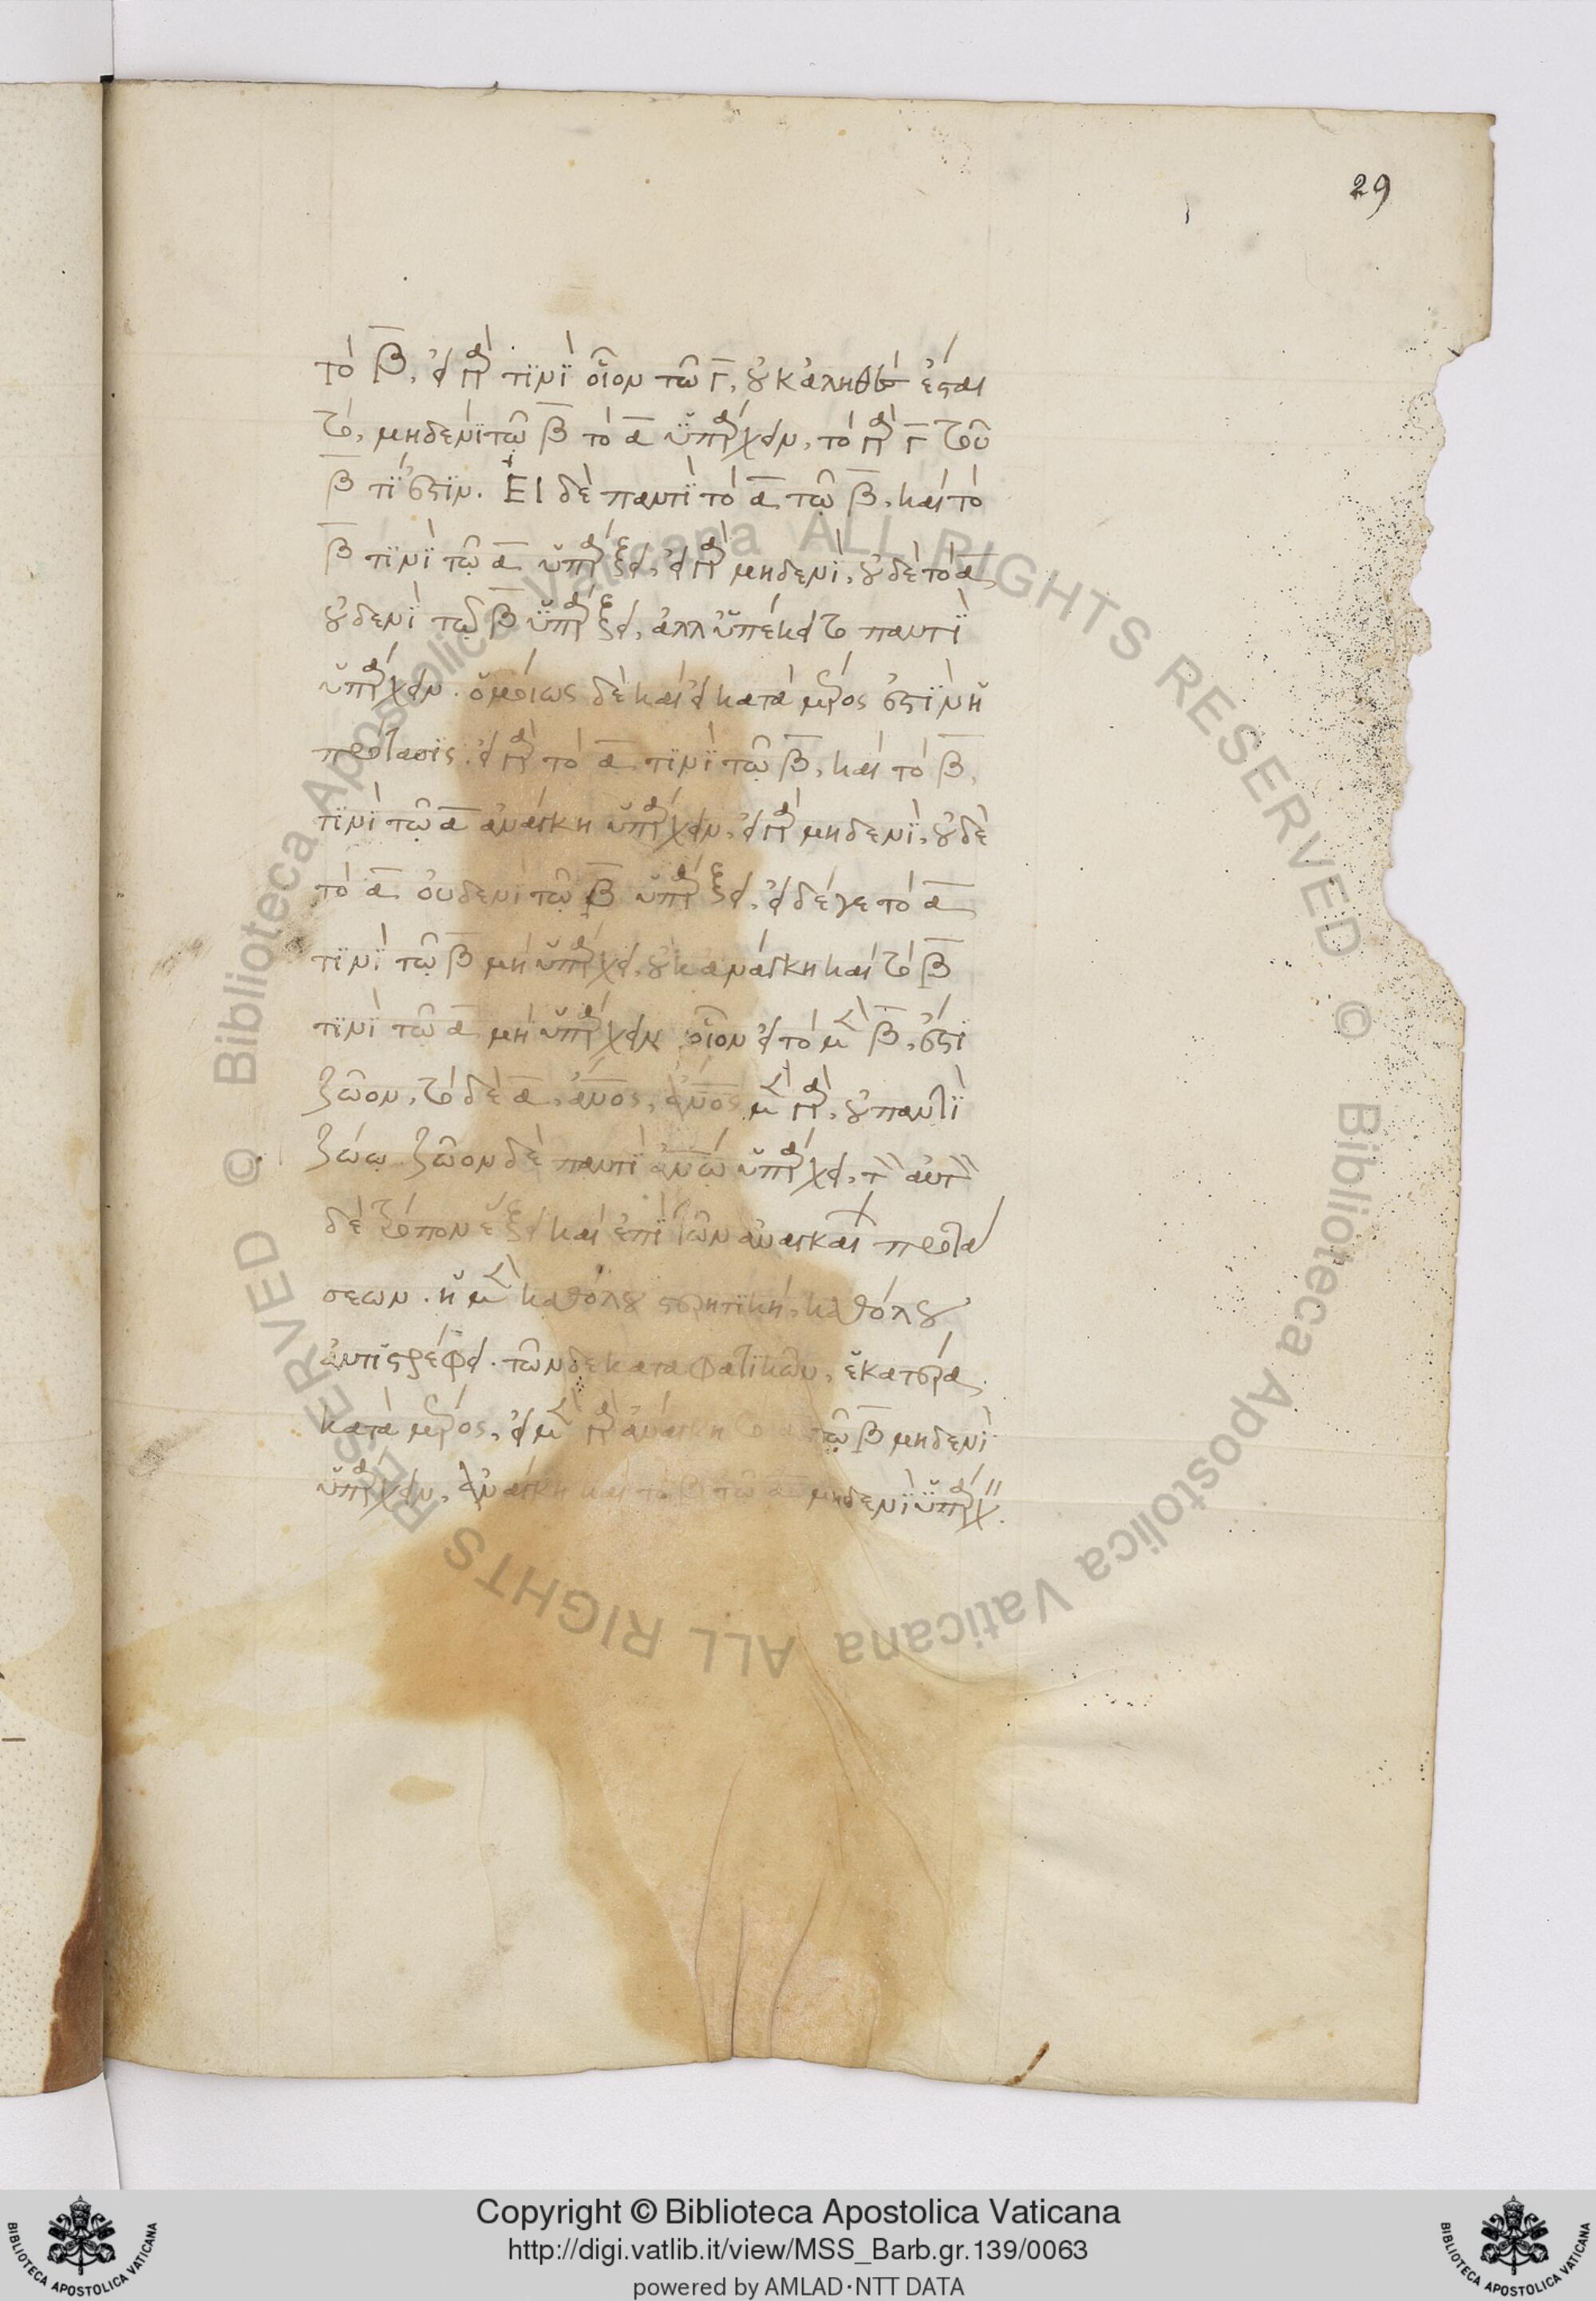 29
το Β, ει γὰρ τινὶ οἷον τῶ Γ, οὐκ ἀληθὲς ἔσται
τό, μηδενὶ τῷ Β τὸ Α ὑπάρχειν, τὸ γὰρ Γ τοῦ
Β τί ἐστιν. Εἰ δὲ παντὶ τὸ Α τῷ Β, καὶ τὸ
Β τινὶ τῷ Α ὑπάρξει, εἰ γὰρ μηδενί, οὐδὲ τὸ Α
οὐδενὶ τῷ Β ὑπάρξει, ἀλλ ὑπέκειτο παντὶ
ὑπάρχειν. ὁμοίως δὲ καὶ εἰ κατὰ μέρος ἐστὶν ἡ
πρότασις. εἰ γὰρ τὸ Α τινὶ τῷ Β, καὶ τὸ Β,
τινὶ τῷ Α ἀνάγκη ὑπάρχειν, εἰ γὰρ μηδενί, οὐδὲ
τὸ Α οὐδενὶ τῷ Β ὑπάρξει, εἰ δέ γε τὸ Α
τινὶ τῷ Β μὴ ὑπάρχει, οὐκ ἀνάγκη καὶ τὸ Β
τινὶ τῷ Α μὴ ὑπάρχειν οἷον εἰ τὸ μὲν Β, ἐστὶ
ζῶον, τὸ δὲ Α, ἄνος, ἄνος μὲν γὰρ, οὐ παντὶ
ζώῳ ζῶον δὲ παντὶ ἀνῷ ὑπάρχει, τὸν αὐτὸν
δὲ τρόπον ἕξει καὶ ἐπὶ τῶν ἀναγκαίων προτά
σεων. ἡ μὲν καθόλου στερητική, καθόλου
ἀντιστρέφει. τῶν δὲ καταφατικῶν, ἑκατέρα
κατὰ μέρος, εἰ μὲν γὰρ ἀνάγκη τὸ Α τῷ Β μηδενὶ
ὑπάρχειν, ἀνάγκη καὶ τὸ Β τῷ Α μηδενὶ ὑπάρχειν.
© Biblioteca Apostolica Vaticana ALL RIGHTS RESERVED © Biblioteca Apostolica Vaticana ALL RIGHTS RESERVED
Copyright © Biblioteca Apostolica Vaticana
http://digi.vatlib.it/view/MSS_Barb.gr.139/0063
powered by AMLAD·NTT DATA
BIBLIOTECA APOSTOLICA VATICANA
BIBLIOTECA APOSTOLICA VATICANA